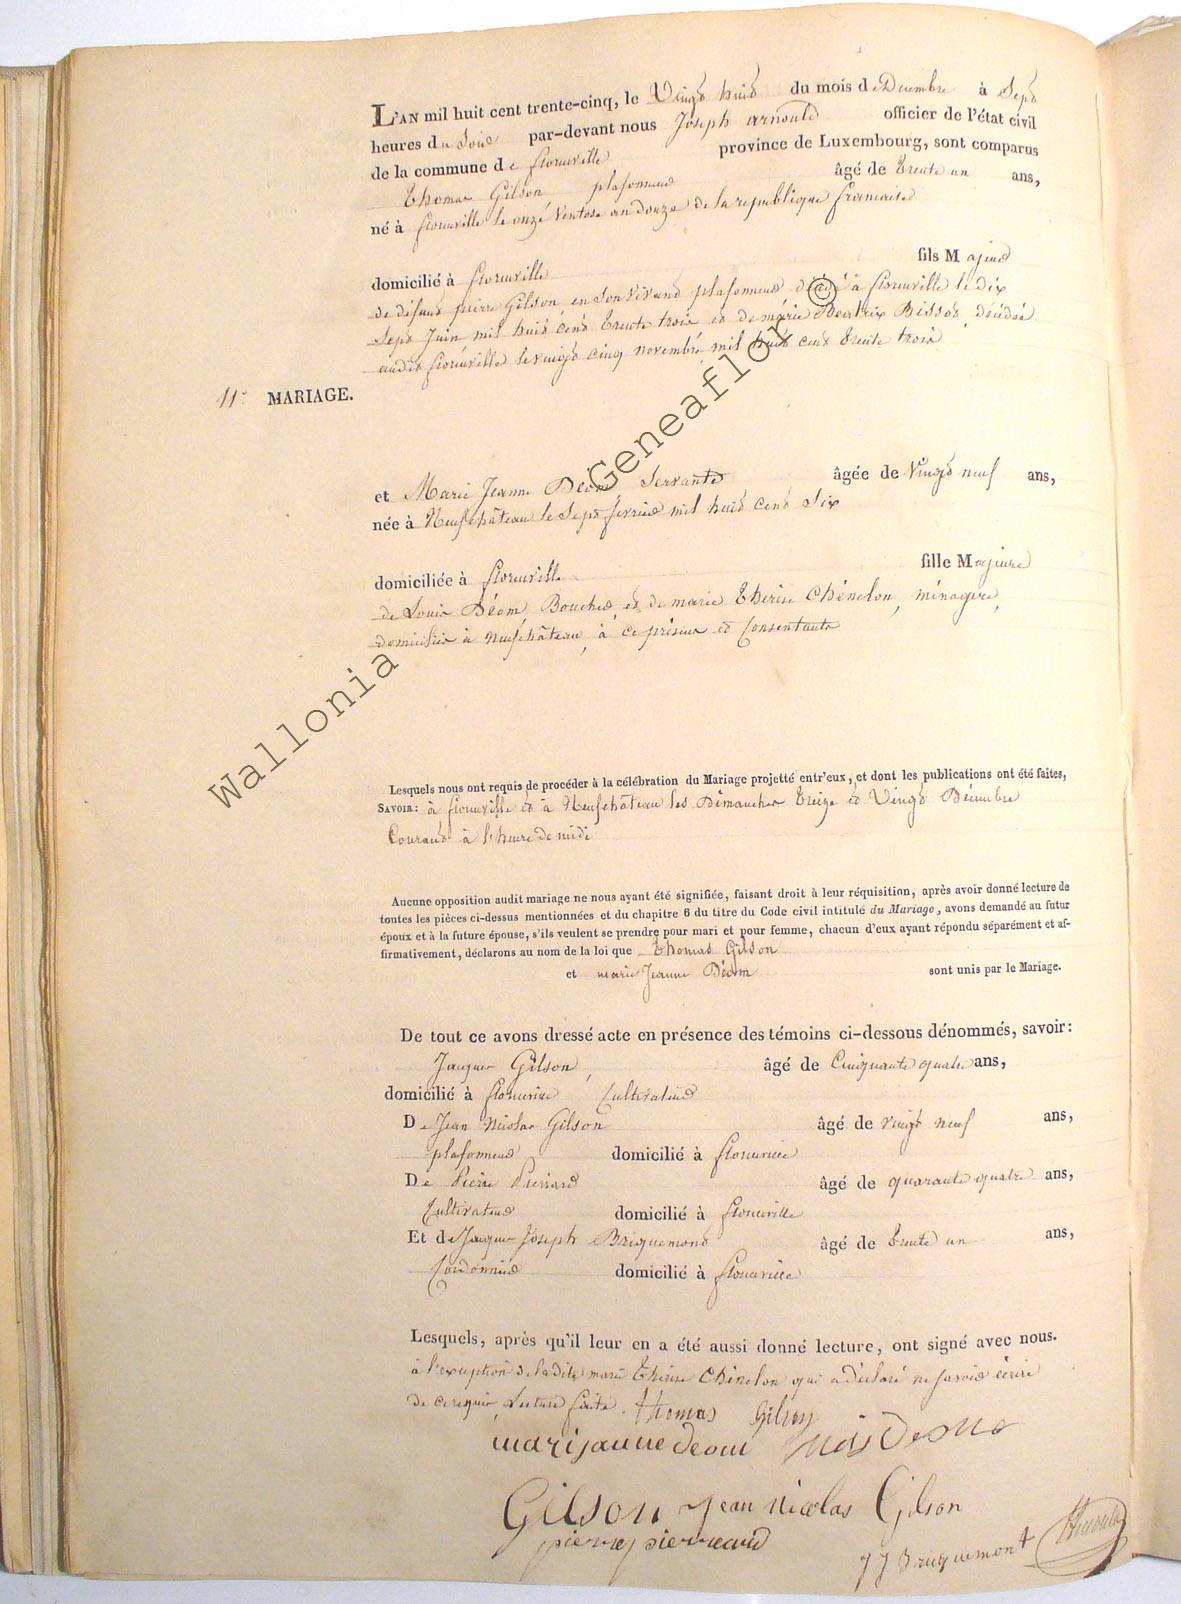 L'AN mil huit cent trente-cinq, le Vingt huit du mois de Décembre à Sept
heures du Soir par-devant nous Joseph arnould officier de l'état civil
de la commune de florenville province de Luxembourg, sont comparus
Thomas Gilson plafonneur âgé de trente un ans,
né à florenville le onze Ventose an douze de la republique francaise
domicilié à florenville fils Majeur
de défunt pierre Gilson en son vivant plafonneur décédé à florenville le dix
Sept Juin mil huit cent trente trois et de marie Beatrix Bissot décédée
audit florenville le vingt cinq novembre mil huit cent trente trois
11e MARIAGE.
et Marie Jeanne Déom Servante âgée de Vingt neuf ans,
née à Neufchâteau le Sept fevrier mil huit cent Six
domiciliée à florenville fille Majeure
de Louis Déom Boucher et de marie thérèse Chénelon, ménagère,
domiciliés à neufchâteau, à ce présens et Consentants
Lesquels nous ont requis de procéder à la célébration du Mariage projetté entr'eux, et dont les publications ont été faites,
SAVOIR: à florenville et à Neufchâteau les Dimanches treize et Vingt Décembre
Courant à l'heure de midi
Aucune opposition audit mariage ne nous ayant été signifiée, faisant droit à leur réquisition, après avoir donné lecture de
toutes les pièces ci-dessus mentionnées et du chapitre 6 du titre du Code civil intitulé du Mariage, avons demandé au futur
époux et à la future épouse, s'ils veulent se prendre pour mari et pour femme, chacun d'eux ayant répondu séparément et af-
firmativement, déclarons au nom de la loi que thomas Gilson
et marie Jeanne Déom sont unis par le Mariage.
De tout ce avons dressé acte en présence des témoins ci-dessous dénommés, savoir:
Jacques Gilson, âgé de Cinquante quatre ans,
domicilié à florenville Cultivateur
De Jean Nicolas Gilson âgé de vingt neuf ans,
plafonneur domicilié à florenville
De Pierre Pierrard âgé de quarante quatre ans,
Cultivateur domicilié à florenville
Et de Jacques Joseph Briquemont âgé de trente un ans,
Cordonnier domicilié à florenville
Lesquels, après qu'il leur en a été aussi donné lecture, ont signé avec nous.
à l'exception de ladite marie thérèse Chénelon qui a déclaré ne savoir écrire
de ce requis Lecture faite. thomas Gilson
marijanne deom
Gilson Jean nicolas Gilson
pierre pierreard JJ Briquemont
Wallonia © Geneaflor